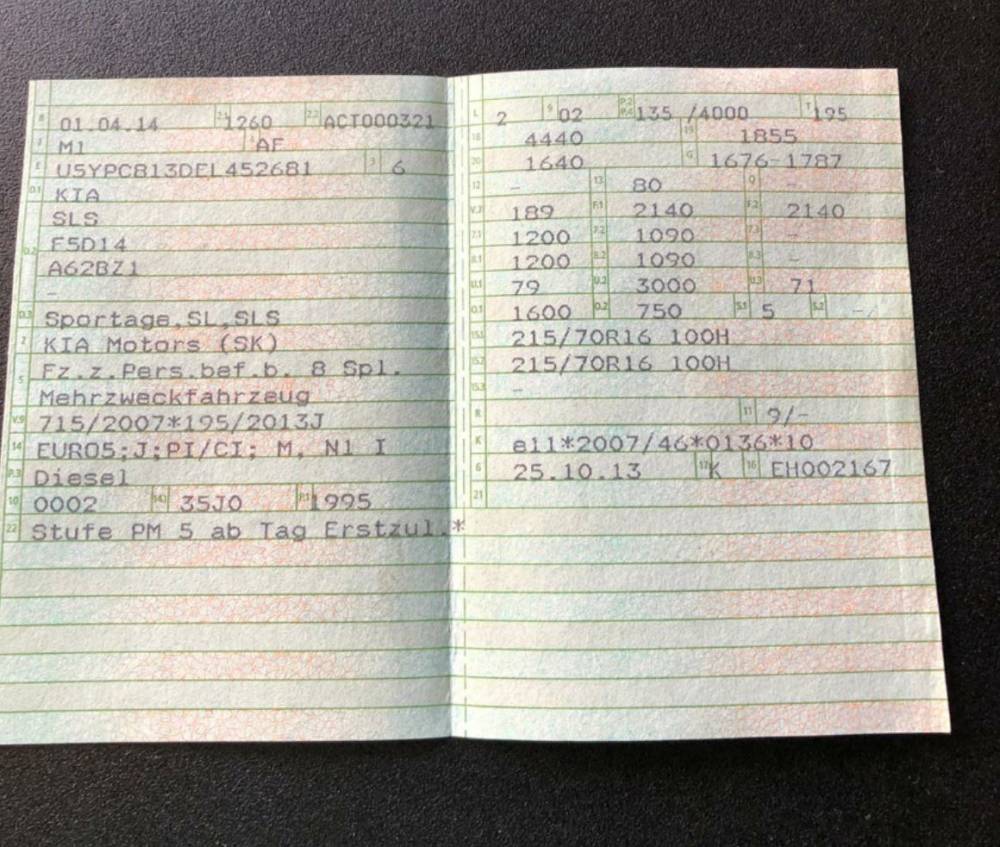 B 01.04.14 2.1 1260 2.2 ACT000321
J M1 4 AF
E U5YPC813DEL452681 3 6
D.1 KIA
SLS
D.2 F5D14
A62BZ1
-
D.3 Sportage,SL,SLS
2 KIA Motors (SK)
5 Fz.z.Pers.bef.b. 8 Spl.
Mehrzweckfahrzeug
V.9 715/2007*195/2013J
14 EURO5;J;PI/CI; M, N1 I
P.3 Diesel
10 0002 14.1 35J0 P.1 1995
22 Stufe PM 5 ab Tag Erstzul.*
L 2 9 02 P.2 P.4 135 /4000 T 195
18 4440 19 1855
20 1640 G 1676-1787
12 - 13 80 Q -
V.7 189 F.1 2140 F.2 2140
7.1 1200 7.2 1090 7.3 -
8.1 1200 8.2 1090 8.3 -
U.1 79 U.2 3000 U.3 71
O.1 1600 O.2 750 S.1 5 S.2 -
15.1 215/70R16 100H
15.2 215/70R16 100H
15.3 -
R 11 9/-
K e11*2007/46*0136*10
6 25.10.13 17 K 16 EH002167
21